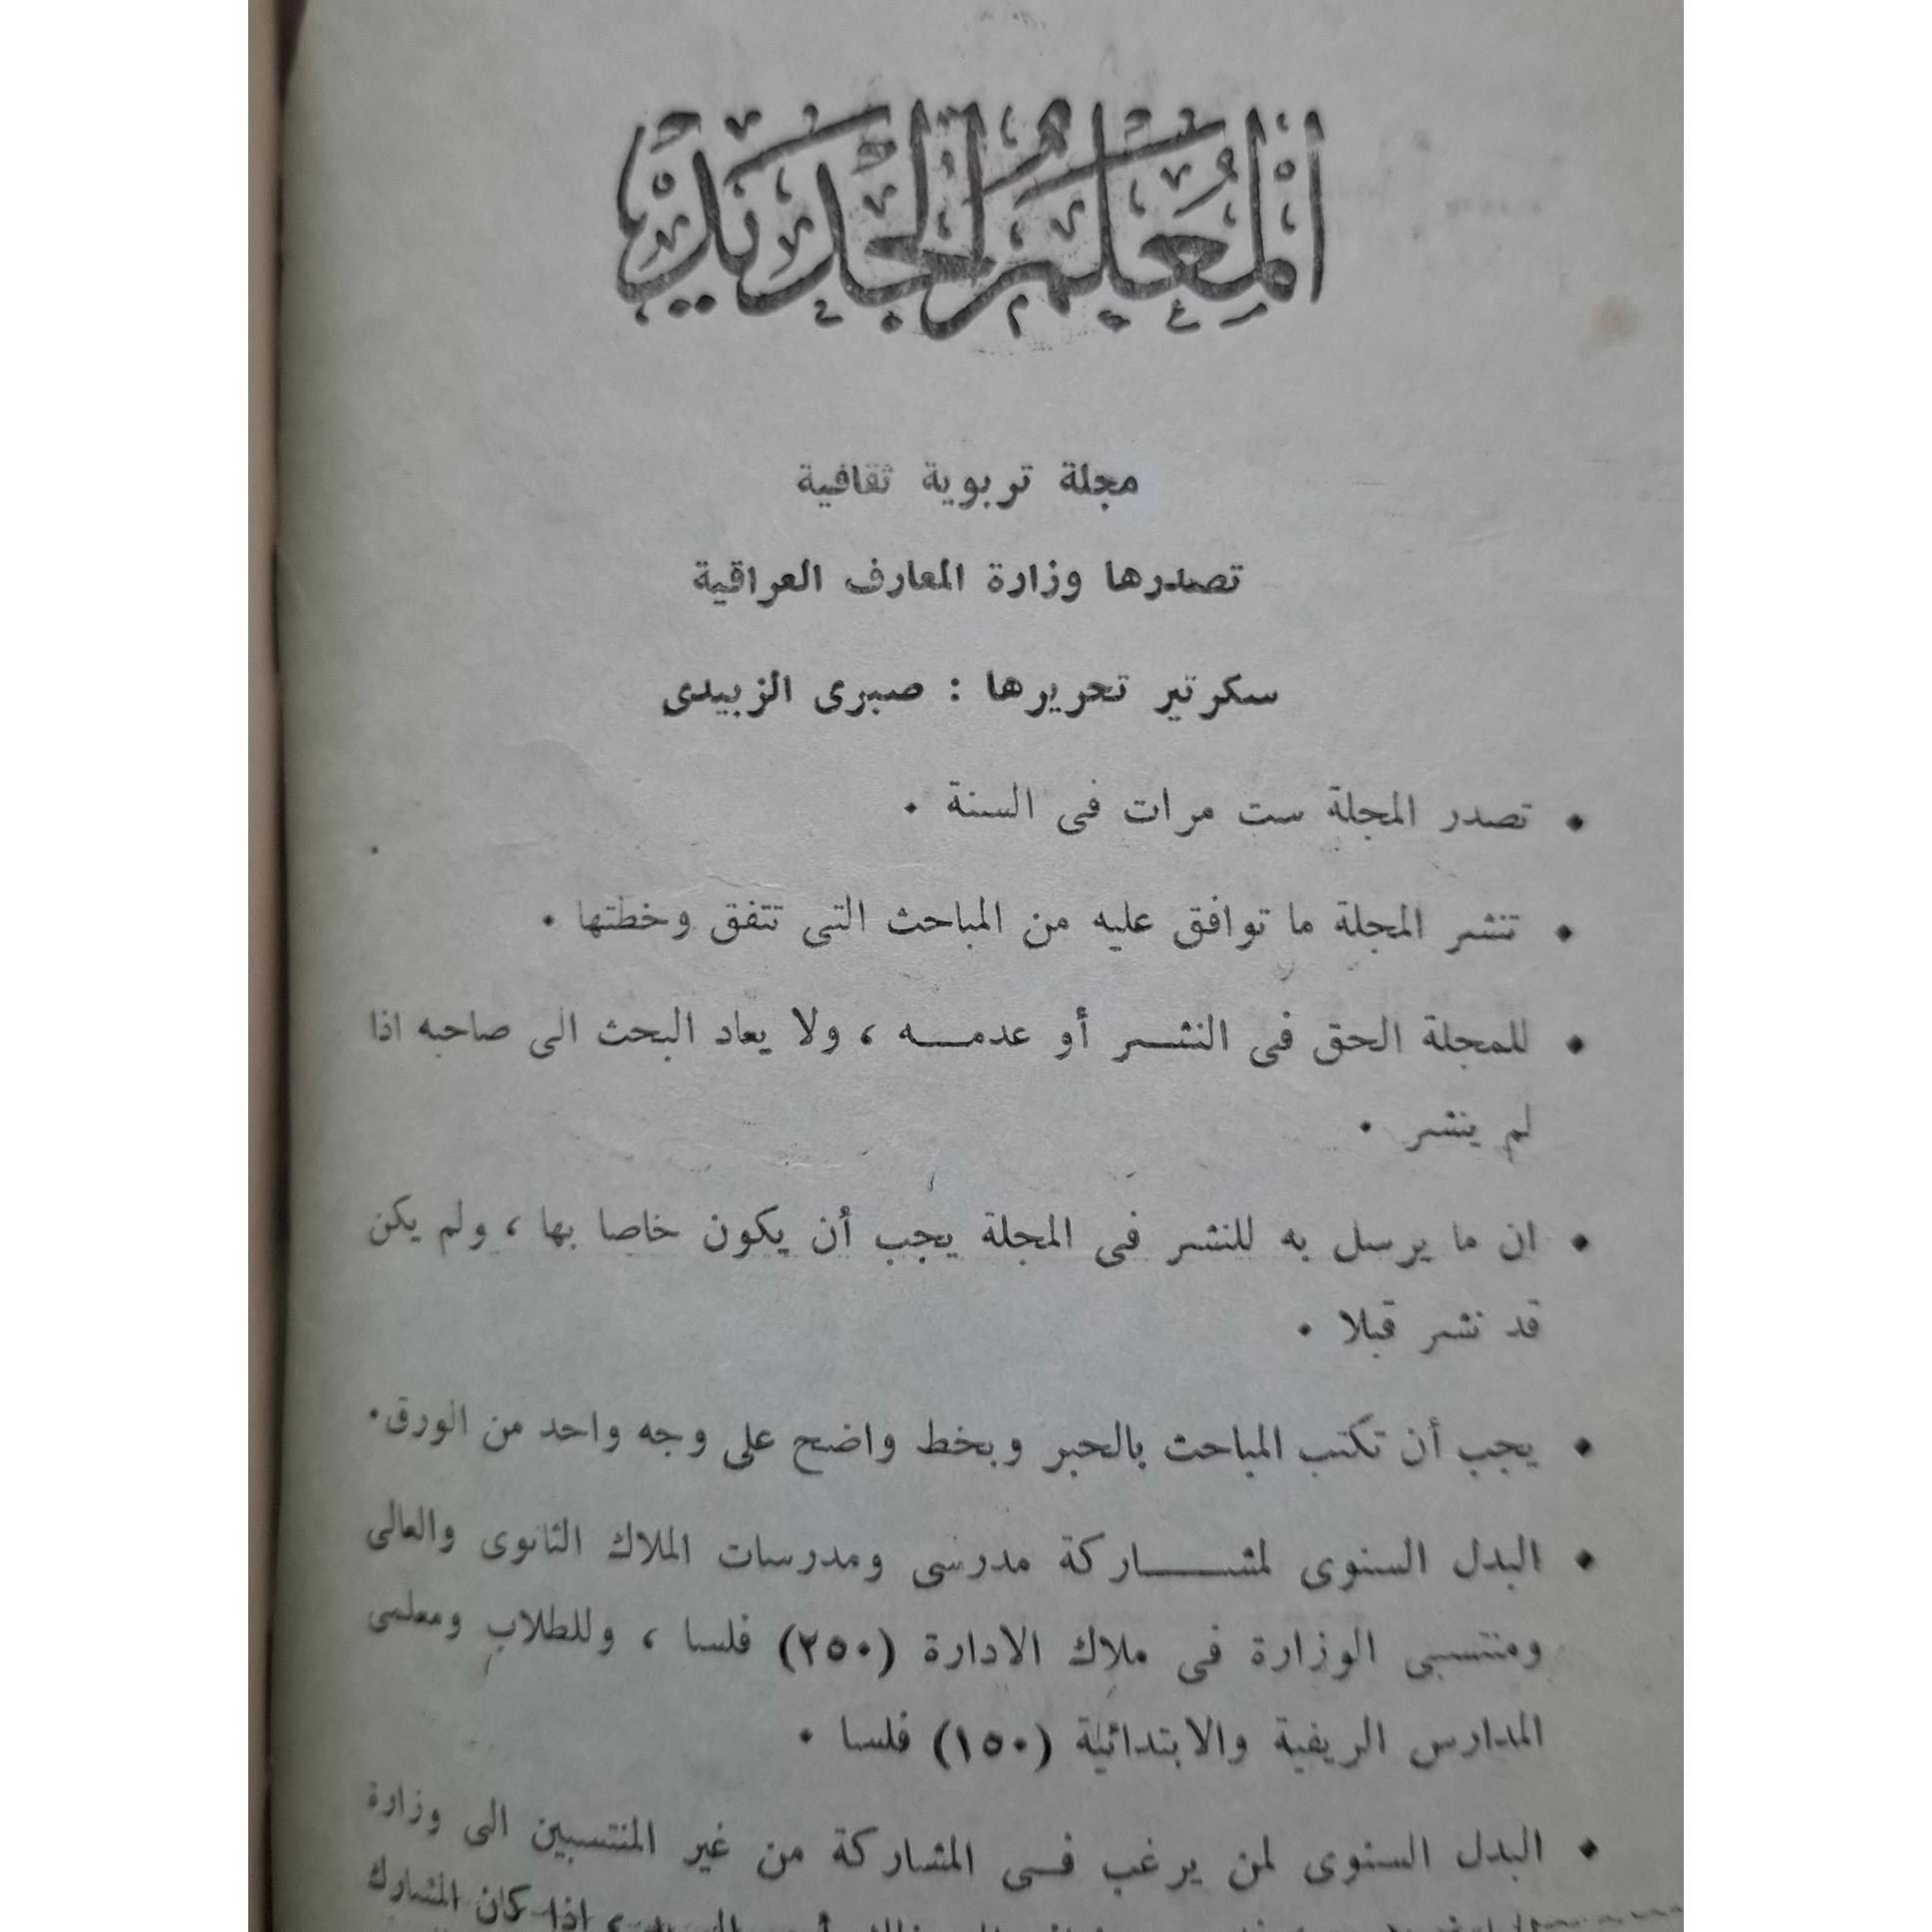 المعلم الجديد
مجلة تربوية ثقافية
تصدرها وزارة المعارف العراقية
سكرتير تحريرها : صبرى الزبيدى
• تصدر المجلة ست مرات فى السنة .
• تنشر المجلة ما توافق عليه من المباحث التى تتفق وخطتها .
• للمجلة الحق فى النشـــر أو عدمـــه ، ولا يعاد البحث الى صاحبه اذا
لم ينشر .
• ان ما يرسل به للنشر فى المجلة يجب أن يكون خاصا بها ، ولم يكن
قد نشر قبلا .
• يجب أن تكتب المباحث بالحبر وبخط واضح على وجه واحد من الورق .
• البدل السنوى لمشــــاركة مدرسى ومدرسات الملاك الثانوى والعالى
ومنتسبى الوزارة فى ملاك الادارة (٢٥٠) فلسا ، وللطلاب ومعلمى
المدارس الريفية والابتدائية (١٥٠) فلسا .
• البدل السنوى لمن يرغب فــى المشاركة من غير المنتسبين الى وزارة
اذا كان المشارك